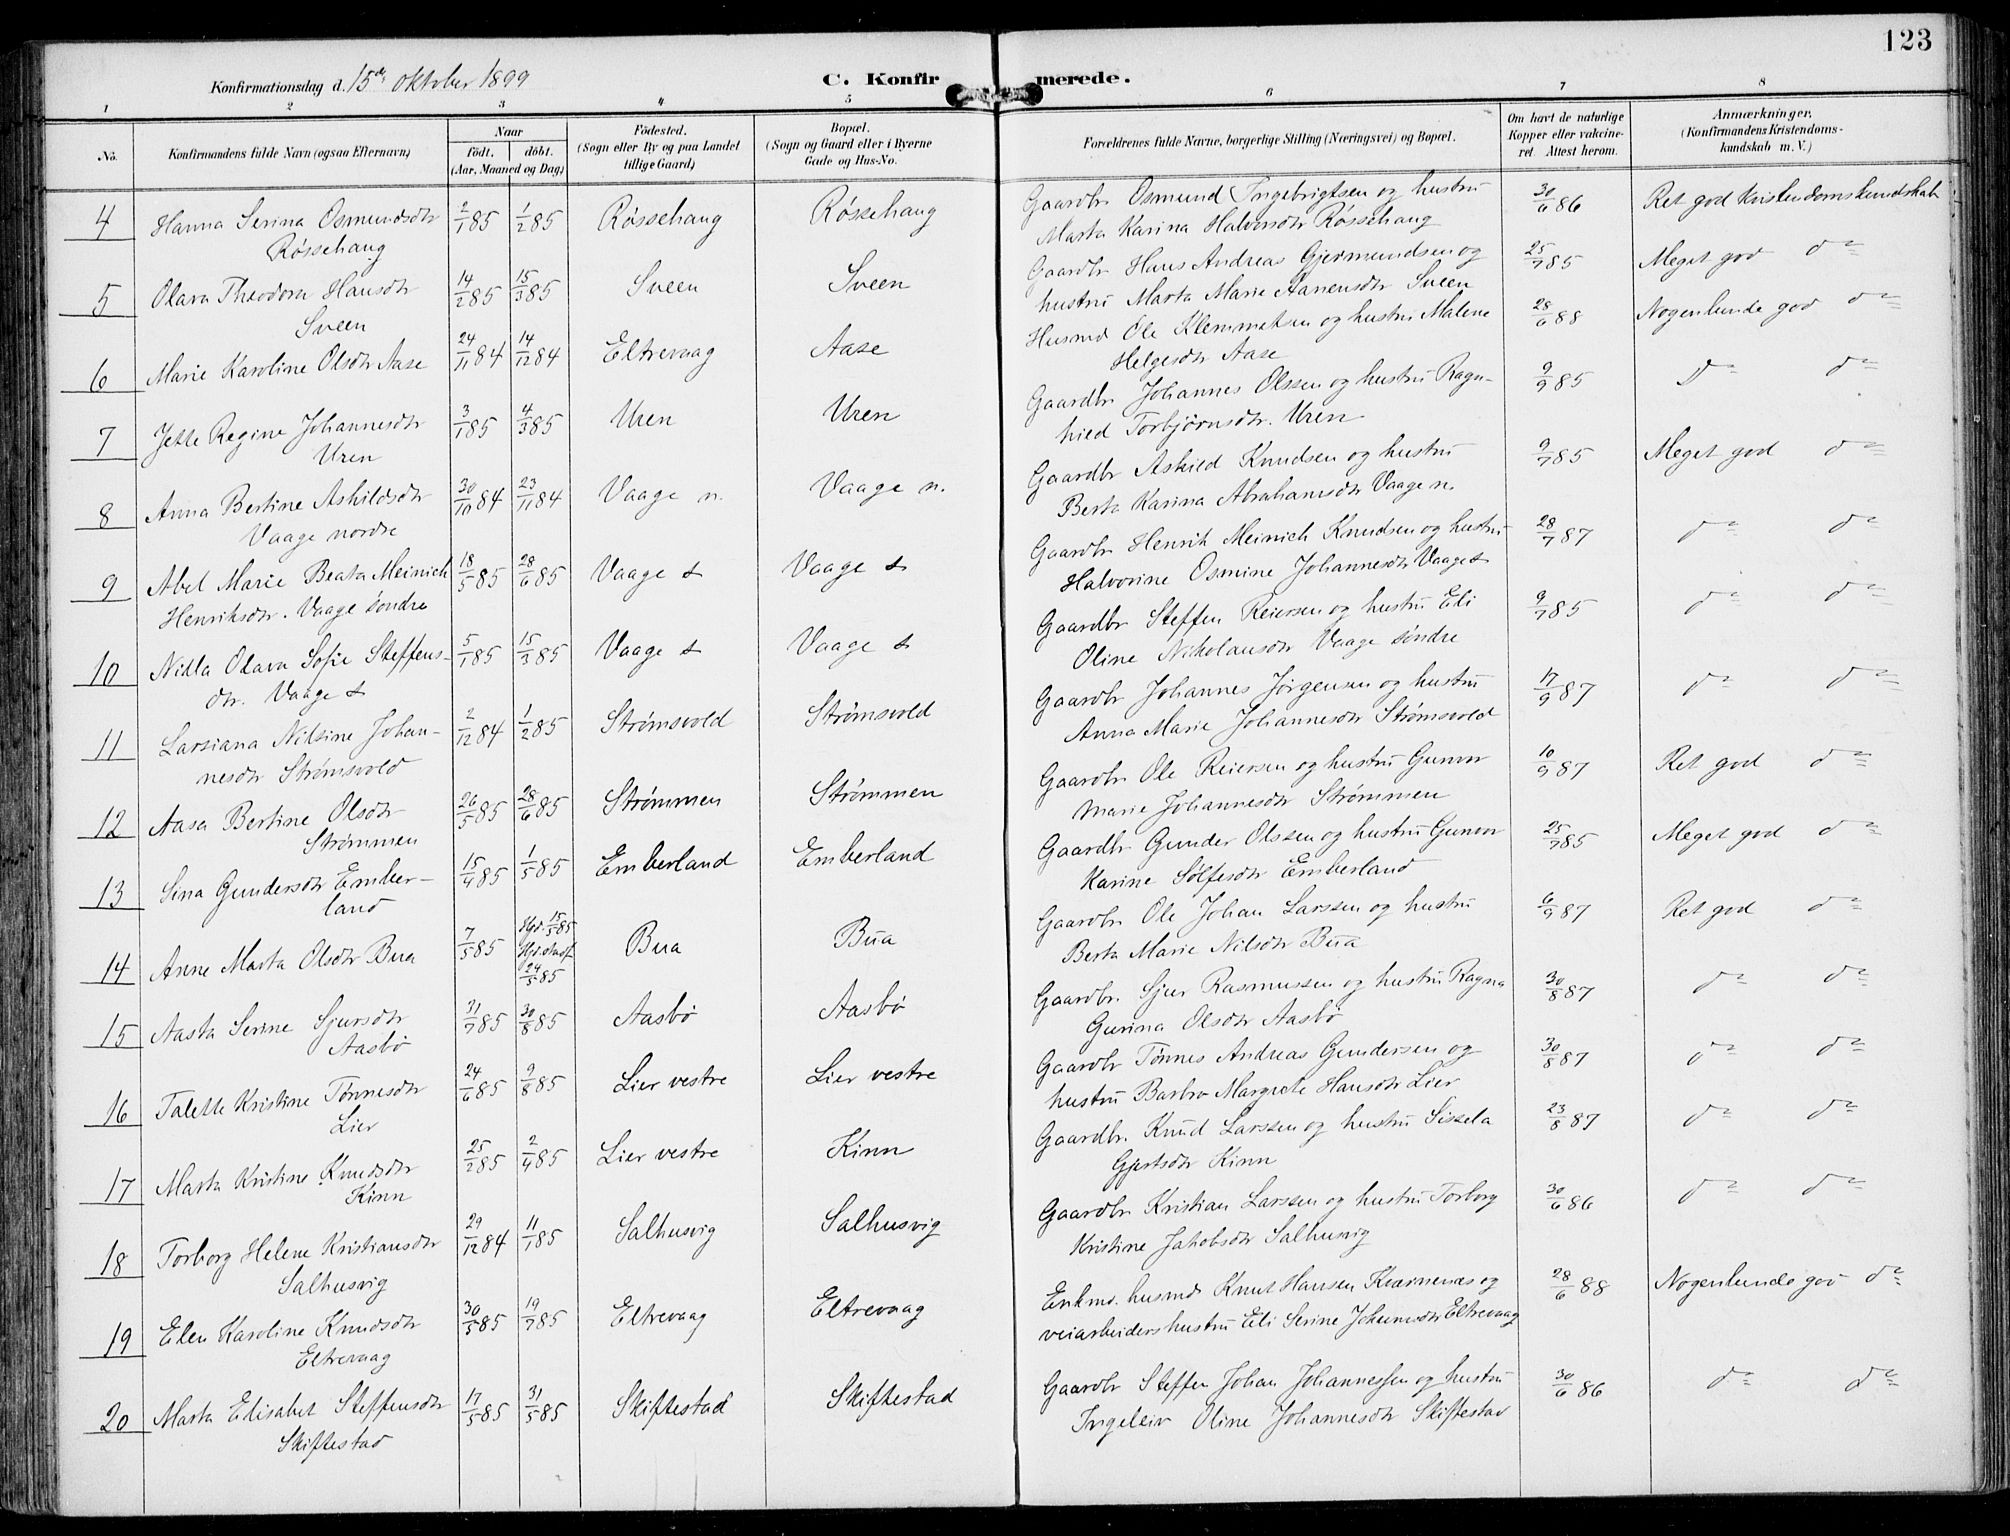 123
Konfirmationsdag d. 15de oktober 1899
C. Konfirmerede.
1 2 3 4 5 6 7 8
No.
Konfirmandens fulde Navn (ogsaa Efternavn)
Naar
födt.
döbt.
(Aar, Maaned og Dag)
Födested.
(Sogn eller By og paa Landet
tillige Gaard)
Bopæl.
(Sogn og Gaard eller i Byerne
Gade og Hus-No.
Forældrenes fulde Navne, borgerlige Stilling (Næringsvei) og Bopæl.
Om havt de naturlige
Kopper eller vakcine-
ret. Attest herom.
Anmærkninger.
(Konfirmandens Kristendoms-
kundskab m. V.)
4 Hanna Serina Osmundsdtr 2/1 85 1/2 85 Røssehaug Røssehaug Gaardbr. Osmund Ingebrigtsen og hustru 30/6 86 Ret god Kristendomskundskab
Røssehaug Marta Karina Halvorsdtr Røssehaug
5 Olava Theodora Hansdtr 14/2 85 15/3 85 Sveen Sveen Gaardbr Hans Andreas Gjermundsen og 25/7 85 Meget god do
Sveen hustru Marta Marie Aanensdtr Sveen
6 Marie Karoline Olsdtr Aase 24/11 84 14/12 84 Eltrevaag Aase Husmd Ole Klemmetsen og hustru Malene 28/6 88 Nogenlunde god do
Helgesdtr Aase
7 Jette Regine Johannesdtr 3/1 85 4/3 85 Uren Uren Gaardbr Johannes Olssen og hustru Ragn- 9/9 85 Do do
Uren hild Torbjørnsdtr. Uren
8 Anna Bertine Askildsdtr 30/10 84 23/11 84 Vaage n. Vaage n. Gaardbr Askild Knudsen og hustru 9/7 85 Meget god do
Vaage nordre Berta Karina Abrahamsdtr Vaage n.
9 Abel Marie Beata Meinich 18/5 85 28/6 85 Vaage s Vaage s Gaardbr Henrik Meinich Knudsen og hustru 28/7 87 do do
Henriksdtr. Vaage søndre Halvorine Osmine Johannesdtr Vaage s
10 Nidla Olava Sofie Steffens- 5/1 85 15/3 85 Vaage s Vaage s Gaardbr Steffen Reiersen og hustru Eli 9/7 85 do do
dtr. Vaage s Oline Nikolausdtr Vaage søndre
11 Larsiana Nilsine Johan- 2/12 84 1/2 85 Strømsvold Strømsvold Gaardbr Johannes Jørgensen og hustru 17/9 87 do do
nesdtr Strømsvold Anna Marie Johannesdtr Strømsvold
12 Aasa Bertine Olsdtr 26/5 85 28/6 85 Strømmen Strømmen Gaardbr Ole Reiersen og hustru Gunvor 10/9 87 Ret god do
Strømmen Marie Johannesdtr Strømmen
13 Sina Gundersdtr Ember- 15/4 85 1/5 85 Emberland Emberland Gaardbr Gunder Olssen og hustru Gunvor 25/7 85 Meget god do
land Karine Sølfesdtr Emberland
14 Anne Marta Olsdtr Bua 7/5 85 Hjd. 15/5 85 Bua Bua Gaardbr Ole Johan Larssen og hustru 6/9 87 Ret god do
24/5 85 Berta Marie Nilsdtr Bua
15 Aasta Serine Sjursdtr 31/7 85 30/8 85 Aasbø Aasbø Gaardbr. Sjur Rasmussen og hustru Ragna 30/8 87 do do
Aasbø Gurina Olsdtr Aasbø
16 Talette Kristine Tønnesdtr 24/6 85 9/8 85 Lier vestre Lier vestre Gaardbr Tønnes Andreas Gundersen og 30/8 87 do do
Lier hustru Barbro Margrete Hansdtr Lier
17 Marta Kristine Knudsdtr 25/2 85 2/4 85 Lier vestre Kinn Gaardbr. Knud Larssen og hustru Sissela 23/8 87 do do
Kinn Gjertsdtr Kinn
18 Torborg Helene Kristiansdtr 29/12 84 11/1 85 Salhusvig Salhusvig Gaardbr Kristian Larssen og hustru Torborg 30/6 86 do do
Salhusvig Kristine Jakobsdtr Salhusvig
19 Elen Karoline Knudsdtr 30/5 85 19/7 85 Eltrevaag Eltrevaag Enkmd. husmd Knut Hansen Kvarnenæs og 28/6 88 Nogenlunde god do
Eltrevaag veiarbeiders hustru Eli Serine Johannesdtr Eltrevaag
20 Marta Elisabet Steffensdtr 17/5 85 31/5 85 Skiftestad Skiftestad Gaardbr Steffen Johan Johannessen og hustru 30/6 86 do do
Skiftestad Ingeleiv Oline Johannesdtr Skiftestad